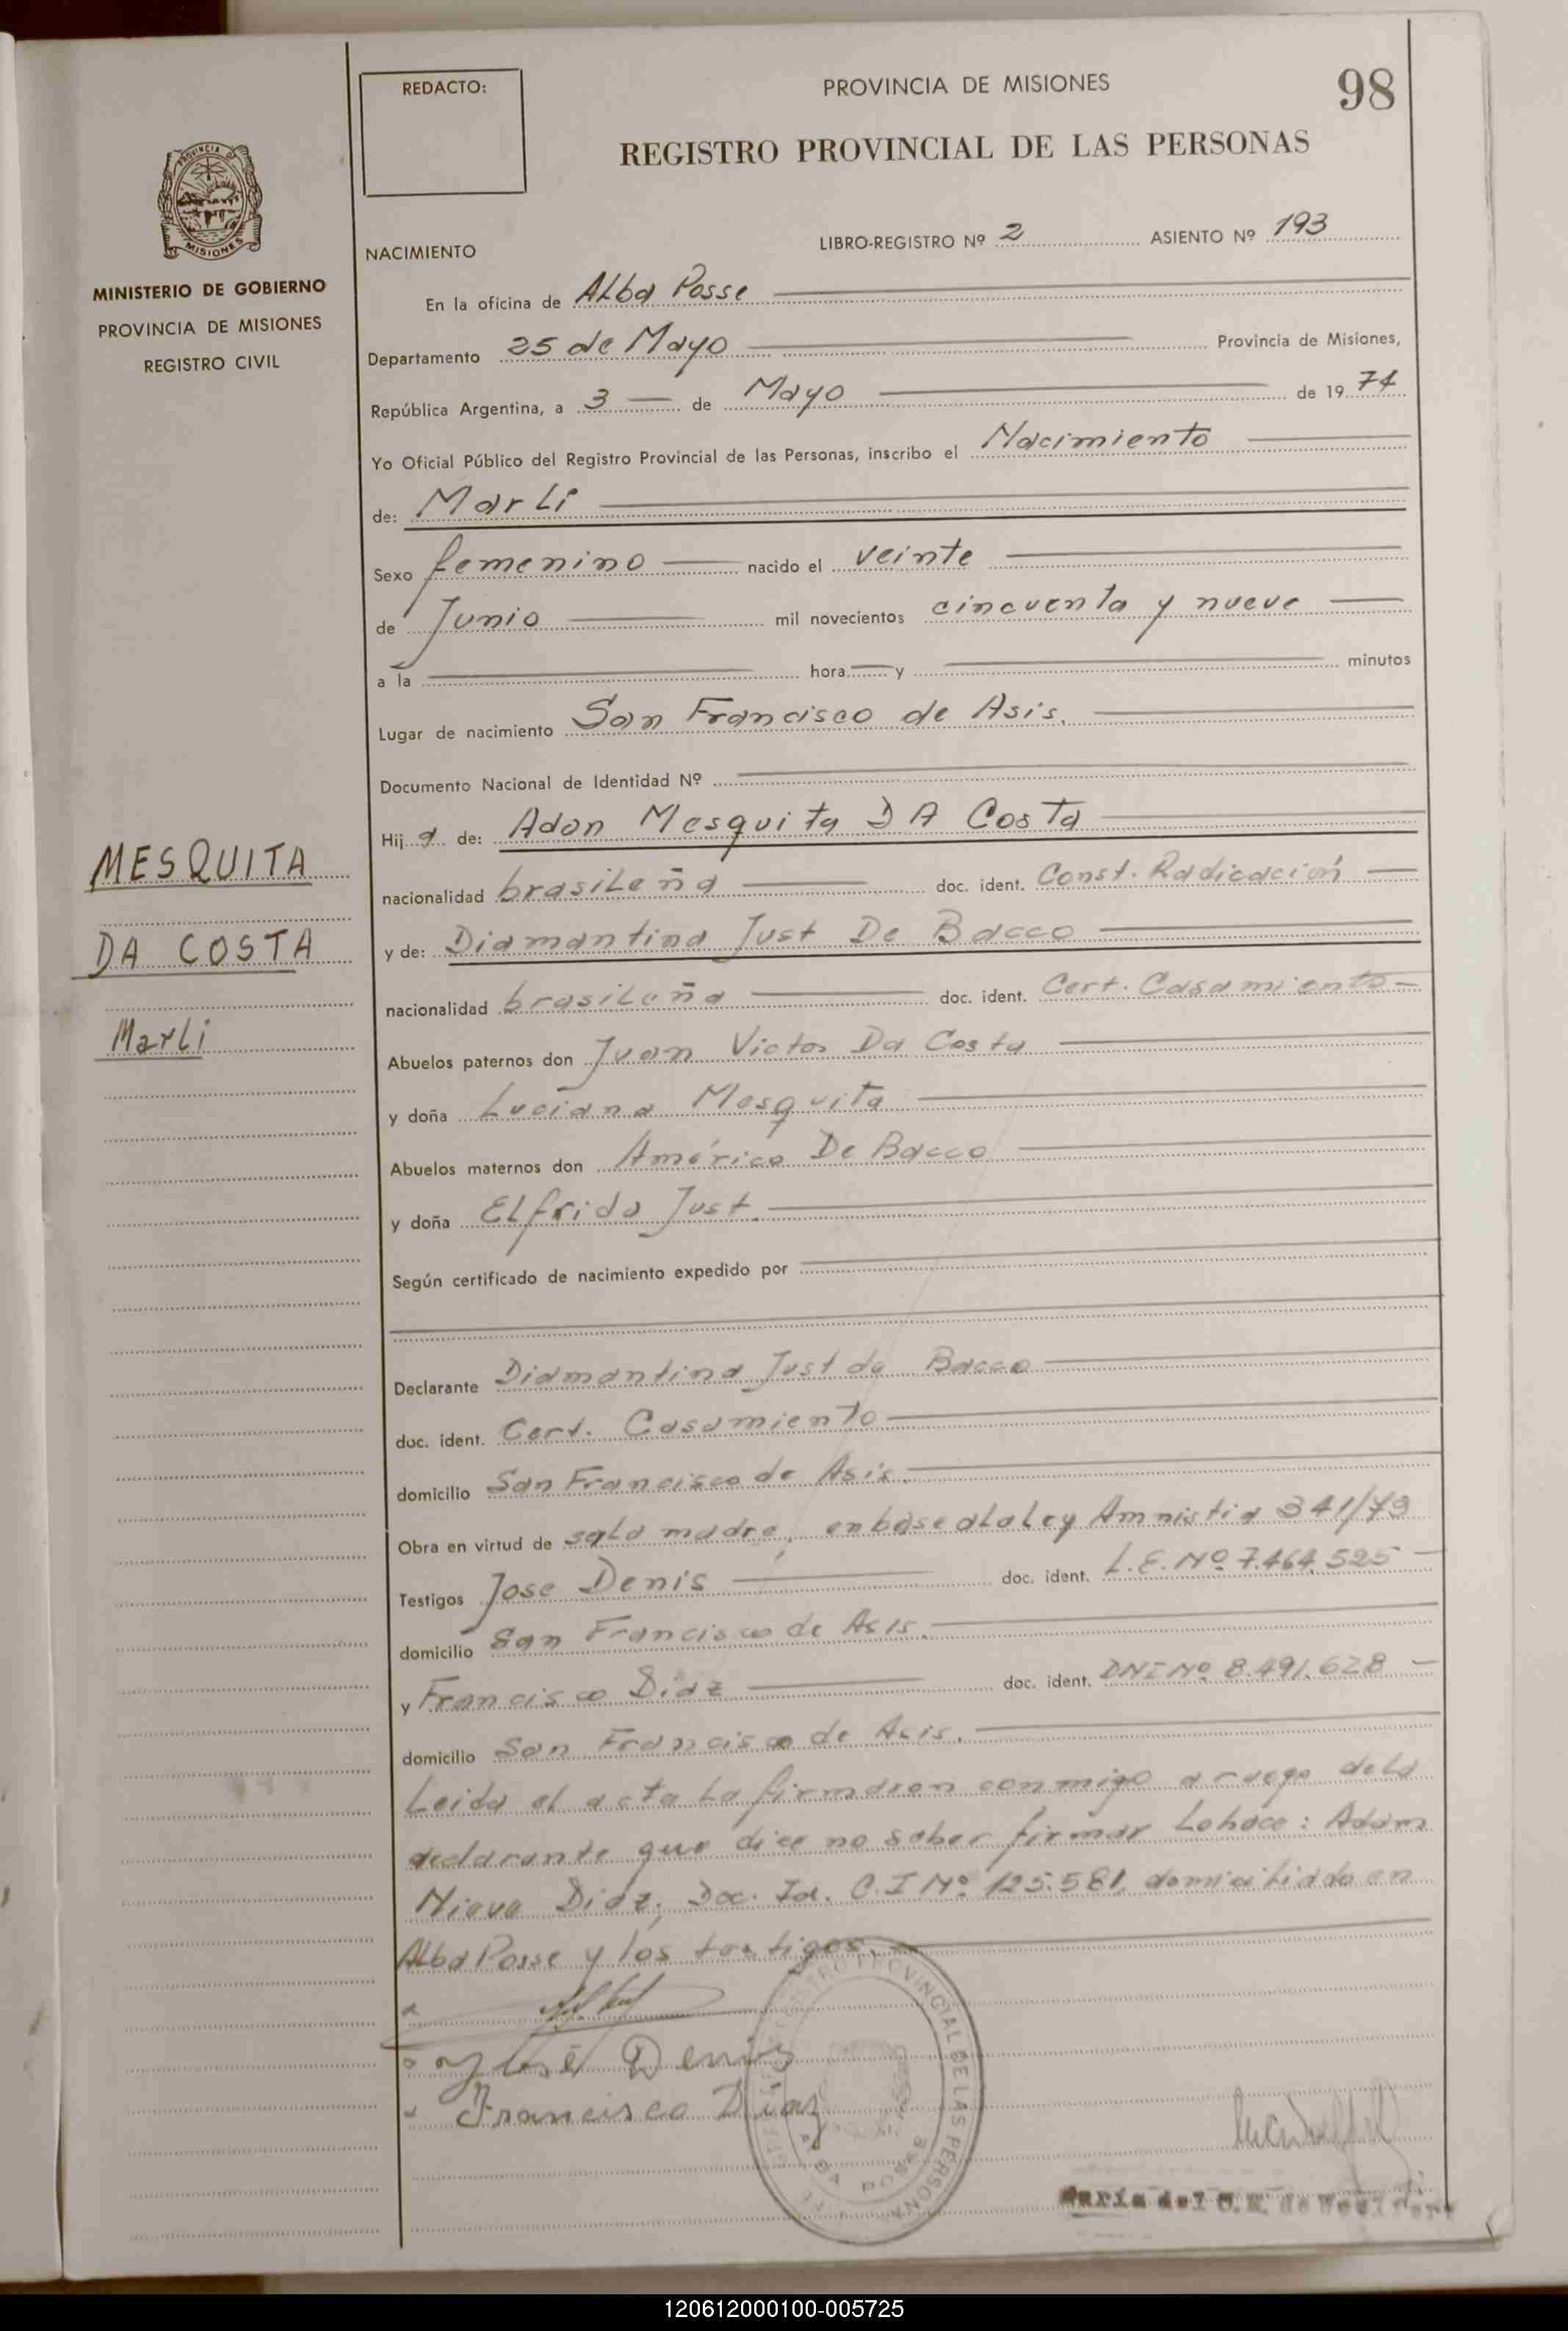 REDACTO:
PROVINCIA DE MISIONES
98
REGISTRO PROVINCIAL DE LAS PERSONAS
PROVINCIA DE
MISIONES
MINISTERIO DE GOBIERNO
PROVINCIA DE MISIONES
REGISTRO CIVIL
NACIMIENTO LIBRO-REGISTRO Nº 2 ASIENTO Nº 193
En la oficina de Alba Posse
Departamento 25 de Mayo Provincia de Misiones,
República Argentina, a 3 de Mayo de 19 74
Yo Oficial Público del Registro Provincial de las Personas, inscribo el Nacimiento
de: Marli
Sexo femenino nacido el veinte
de Junio mil novecientos cincuenta y nueve
a la hora y minutos
Lugar de nacimiento San Francisco de Asis.
Documento Nacional de Identidad Nº
Hij a de: Adan Mesquita DA Costa
MESQUITA
nacionalidad brasileña doc. ident. Const. Radicación
DA COSTA
y de: Diamantina Just De Bacco
nacionalidad brasileña doc. ident. Cert. Casamiento
Marli
Abuelos paternos don Juan Victor Da Costa
y doña Luciana Mesquita
Abuelos maternos don Américo De Bacco
y doña Elfrida Just.
Según certificado de nacimiento expedido por
Declarante Diamantina Just de Bacco
doc. ident. Cert. Casamiento
domicilio San Francisco de Asis.
Obra en virtud de ser la madre, en base a la ley Amnistia 341/73
Testigos Jose Denis doc. ident. L.E. Nº 7.464.525
domicilio San Francisco de Asis.
y Francisco Diaz doc. ident. DNI Nº 8.491.628
domicilio San Francisco de Asis.
Leida el acta la firmaron conmigo a ruego de la
declarante que dice no saber firmar lo hace: Adam
Nieva Diaz, Doc. Id. C.I Nº 125.581, domiciliado en
Alba Posse y los testigos.
José Denis
Francisco Díaz
REGISTRO PROVINCIAL DE LAS PERSONAS
ALBA POSSE
María del C.
120612000100-005725